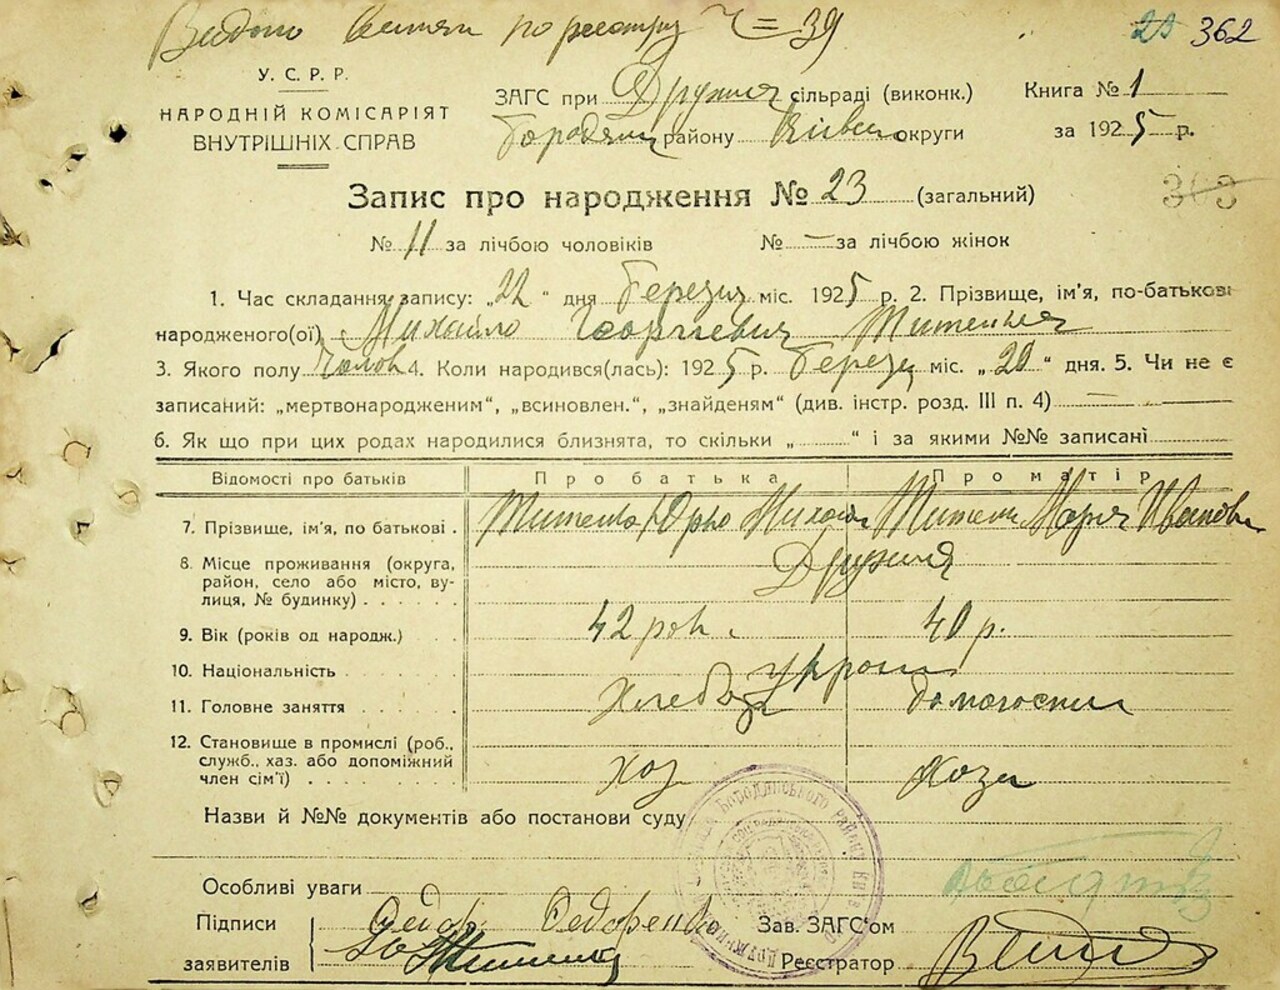 Видано по реєстру Ч = 39
23 362
У. С. Р. Р.
НАРОДНІЙ КОМІСАРІЯТ
ВНУТРІШНІХ СПРАВ
ЗАГС при Дружня сільраді (виконк.)
Бородян району Київськ округи
Книга № 1
за 1925 р.
Запис про народження № 23 (загальний)
303
№ 11 за лічбою чоловіків № — за лічбою жінок
1. Час складання запису: „22“ дня Березня міс. 1925 р. 2. Прізвище, ім’я, по-батькові
народженого(ої) Михайло Георгієвич Титенко
3. Якого полу Чолов 4. Коли народився(лась): 1925 р. Березня міс. „20“ дня. 5. Чи не є
записаний: „мертвонародженим“, „всиновлен.“, „знайденям“ (див. інстр. розд. III п. 4) — —
6. Як що при цих родах народилися близнята, то скільки „ “ і за якими №№ записані
Відомості про батьків Про батька Про матір
7. Прізвище, ім’я, по батькові . Титенко Юрко Михайл Титенко Марія Іванов
8. Місце проживання (округа,
район, село або місто, ву-
лиця, № будинку) . . . . . .
Дружня
9. Вік (років од народж.) . . . 42 рок. 40 р.
10. Національність . . . . . . Україн
11. Головне заняття . . . . . Хлебор домогоспод
12. Становище в промислі (роб.,
служб., хаз. або допоміжний
член сім’ї) . . . . . . . .
хоз хозя
Назви й №№ документів або постанови суду
Особливі уваги
Підписи
заявителів
Федор Федоренко
Ю Титенко
Зав. ЗАГС’ом
Реєстратор
Бородянського району